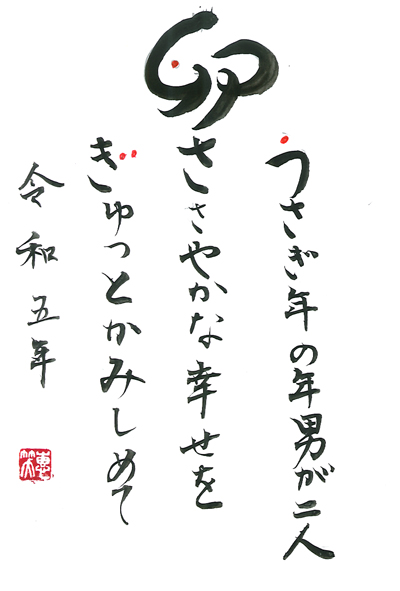 卯
うさぎ年の年男が二人
ささやかな幸せを
ぎゅっとかみしめて
令和五年